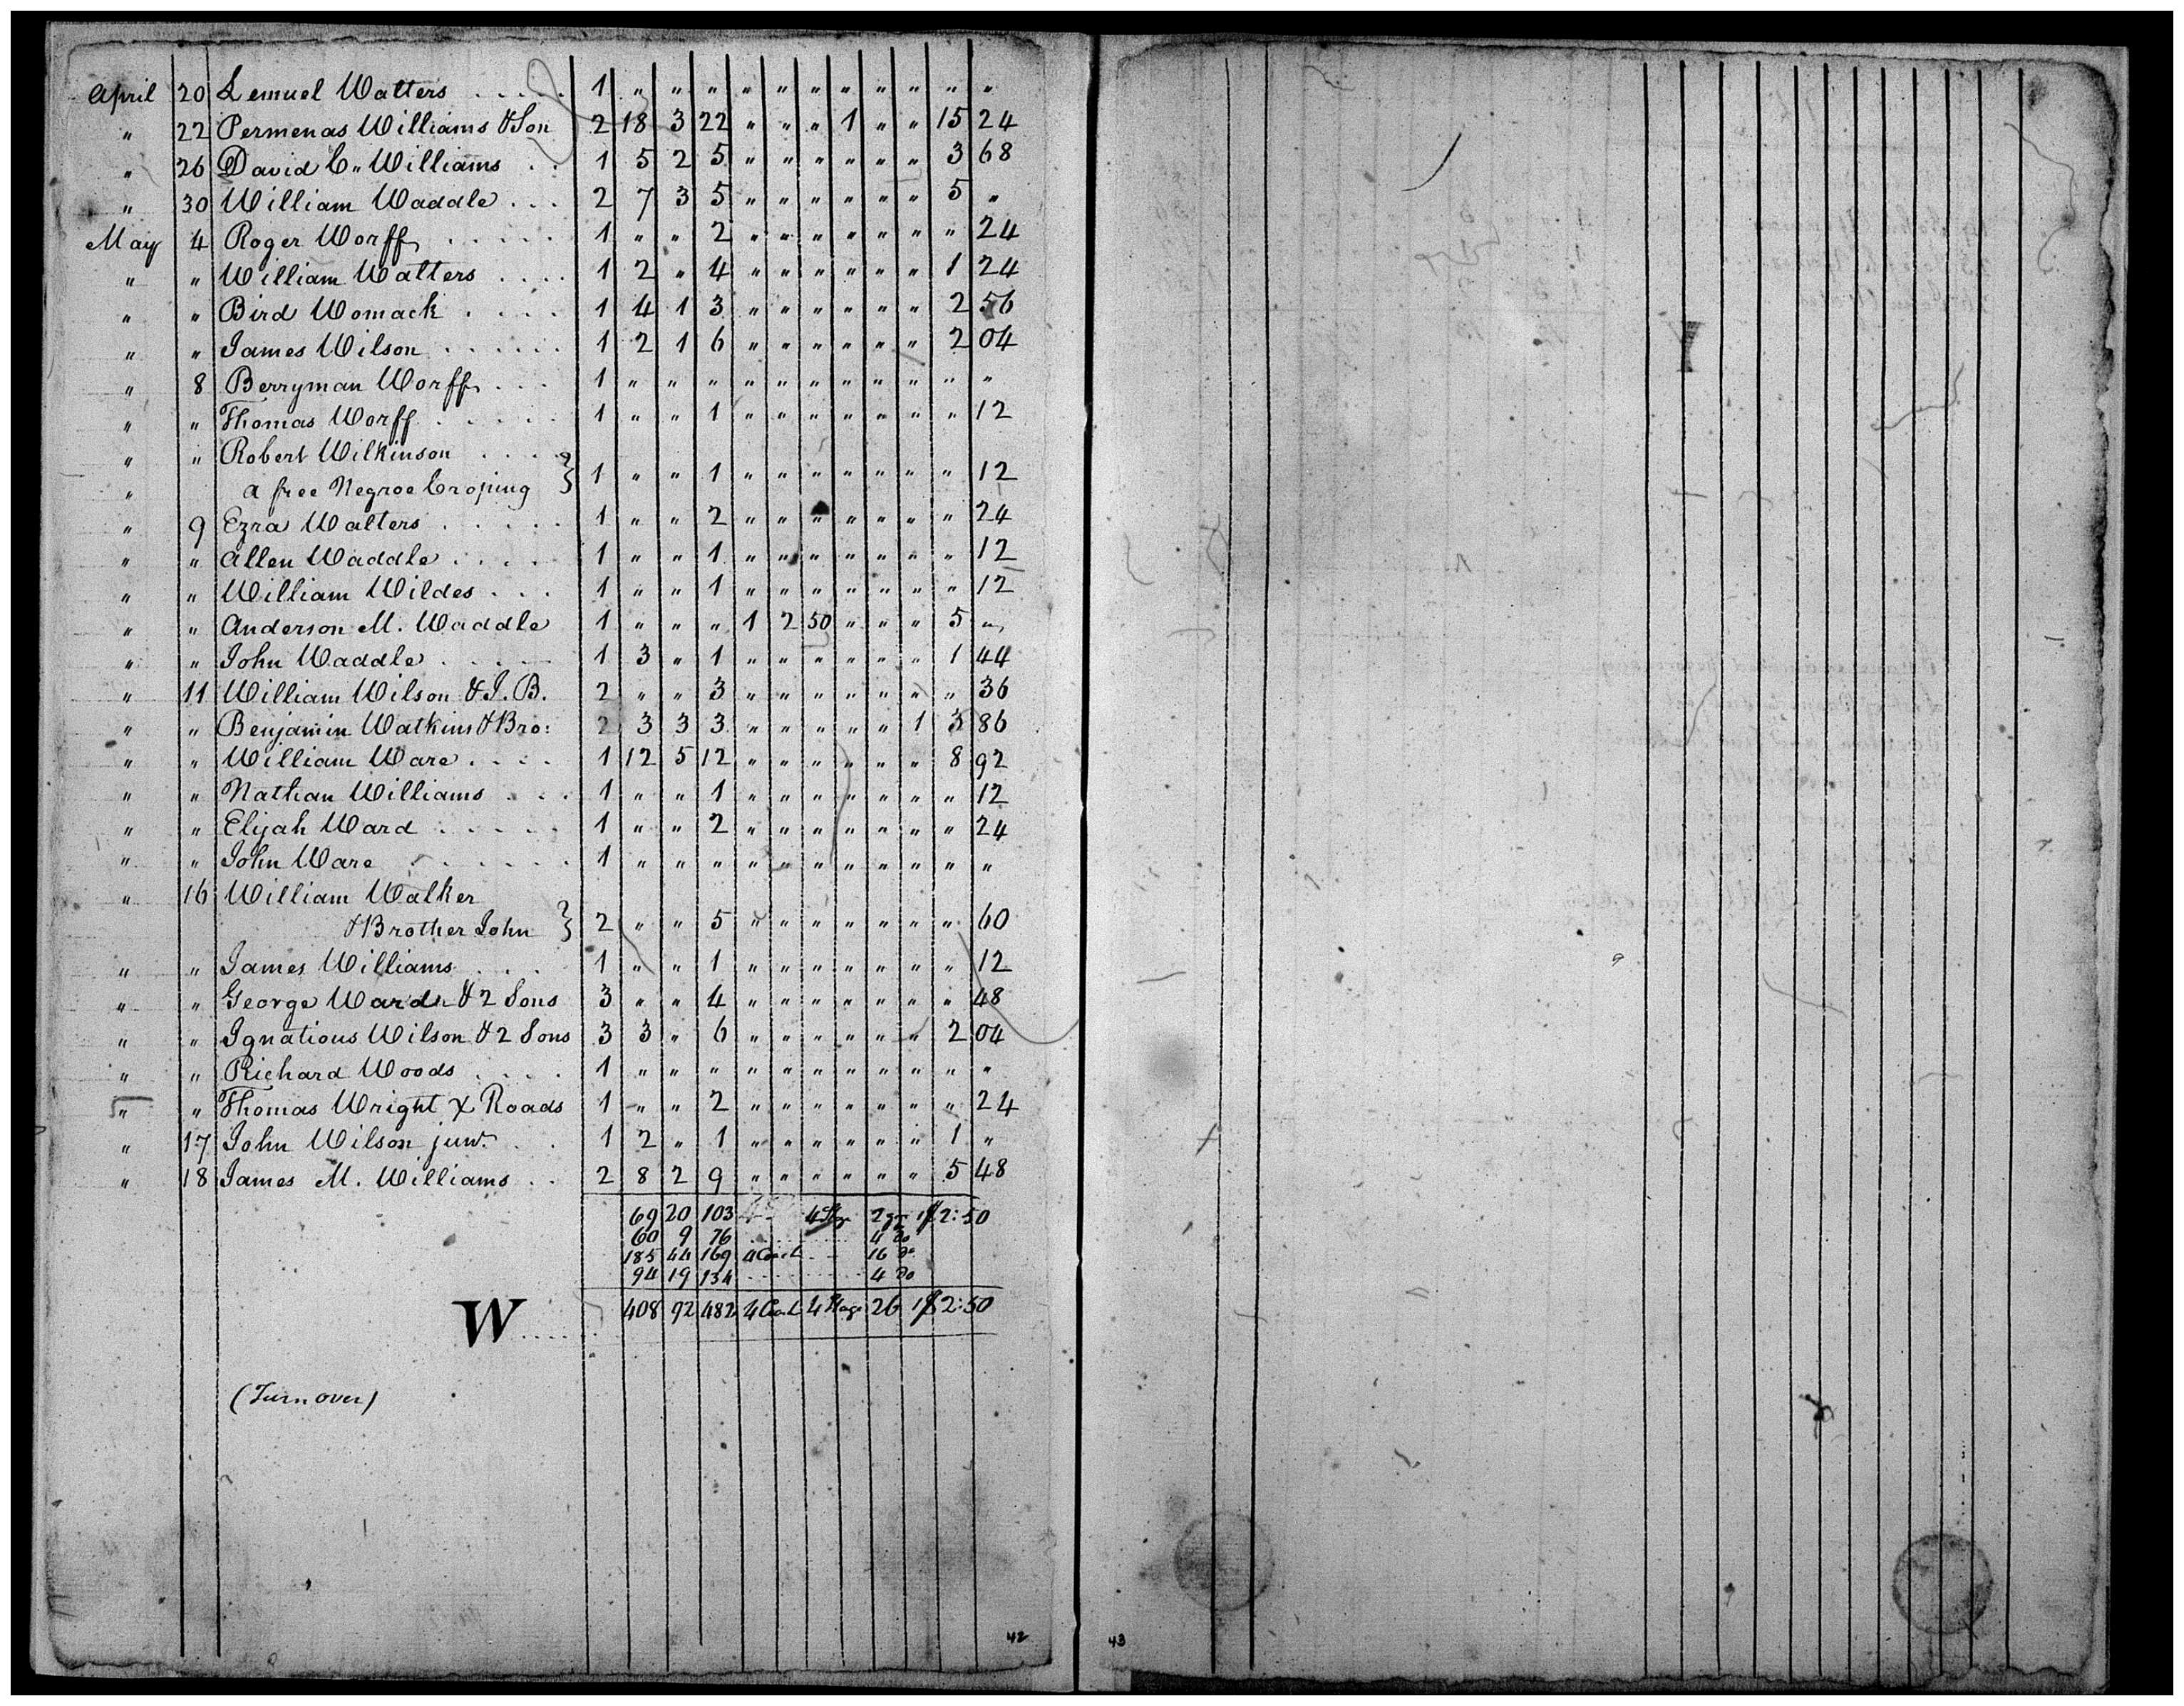 April 20 Lemuel Walters . . . . . 1 " " " " " " " " " " "
" 22 Permenas Williams & Son 2 18 3 22 " " " 1 " " 15 24
" 26 David C. Williams . . 1 5 2 5 " " " " " " 3 68
" 30 William Waddle . . . 2 7 3 5 " " " " " " 5 "
May 4 Roger Worff . . . . . 1 " " 2 " " " " " " " 24
" " William Walters . . . . 1 2 " 4 " " " " " " 1 24
" " Bird Womack . . . . 1 4 1 3 " " " " " " 2 56
" " James Wilson . . . . . . 1 2 1 6 " " " " " " 2 04
" 8 Berryman Worff . . . 1 " " " " " " " " " " "
" " Thomas Worff . . . . . 1 " " 1 " " " " " " " 12
" " Robert Wilkinson . . . .
" a free Negroe Croping } 1 " " 1 " " " " " " " 12
" 9 Ezra Walters . . . . . 1 " " 2 " " " " " " " 24
" " Allen Waddle . . . . 1 " " 1 " " " " " " " 12
" " William Wildes . . . 1 " " 1 " " " " " " " 12
" " Anderson M. Waddle 1 " " " 1 2 50 " " " 5 "
" " John Waddle . . . . . 1 3 " 1 " " " " " " 1 44
" 11 William Wilson & J. B. 2 " " 3 " " " " " " " 36
" " Benjamin Watkins & Bro: 2 3 3 3 " " " " " 1 3 86
" " William Ware . . . . 1 12 5 12 " " " " " " 8 92
" " Nathan Williams . . . 1 " " 1 " " " " " " " 12
" " Elijah Ward . . . . . 1 " " 2 " " " " " " " 24
" " John Ware . . . . . . 1 " " " " " " " " " " "
" 16 William Walker
& Brother John } 2 " " 5 " " " " " " " 60
" " James Williams . . . 1 " " 1 " " " " " " " 12
" " George Ward & 2 Sons 3 " " 4 " " " " " " " 48
" " Ignatious Wilson & 2 Sons 3 3 " 6 " " " " " " 2 04
" " Richard Woods . . . . 1 " " " " " " " " " " "
" " Thomas Wright X Roads 1 " " 2 " " " " " " " 24
" 17 John Wilson junr. . . 1 2 " 1 " " " " " " 1 "
" 18 James M. Williams . . 2 8 2 9 " " " " " " 5 48
69 20 103 2 1 $2:50
60 9 76 4 do
185 44 169 4 Coach 16 do
94 19 134 4 do
W . . . . . 408 92 482 4 Coach 4 Stage 26 1 $2:50
(Turn over)
42
43
Y